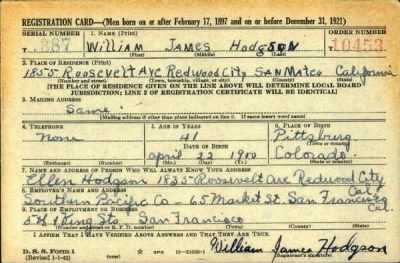 REGISTRATION CARD—(Men born on or after February 17, 1897 and on or before December 31, 1921)
SERIAL NUMBER 1. NAME (Print) ORDER NUMBER
William James Hodgson 10453
(First) (Middle) (Last)
2. PLACE OF RESIDENCE (Print)
1855 Roosevelt Ave Redwood City San Mateo California
(Number and street) (Town, township, village, or city) (County) (State)
[THE PLACE OF RESIDENCE GIVEN ON THE LINE ABOVE WILL DETERMINE LOCAL BOARD
JURISDICTION; LINE 2 OF REGISTRATION CERTIFICATE WILL BE IDENTICAL]
3. MAILING ADDRESS
Same
[Mailing address if other than place indicated on line 2. If same insert word same]
4. TELEPHONE 5. AGE IN YEARS 6. PLACE OF BIRTH
None 41 Pittsburg
DATE OF BIRTH (Town or county)
April 22 1900 Colorado
(Exchange) (Number) (Mo.) (Day) (Yr.) (State or country)
7. NAME AND ADDRESS OF PERSON WHO WILL ALWAYS KNOW YOUR ADDRESS
Ellen Hodgson 1855 Roosevelt Ave Redwood City Cal
8. EMPLOYER'S NAME AND ADDRESS
Southern Pacific Co - 65 Market St. San Francisco Cal.
9. PLACE OF EMPLOYMENT OR BUSINESS
King Sts. San Francisco
(Number and street or R. F. D. number) (Town) (County) (State)
I AFFIRM THAT I HAVE VERIFIED ABOVE ANSWERS AND THAT THEY ARE TRUE.
D. S. S. Form 1
(Revised 1-1-42) (over) William James Hodgson